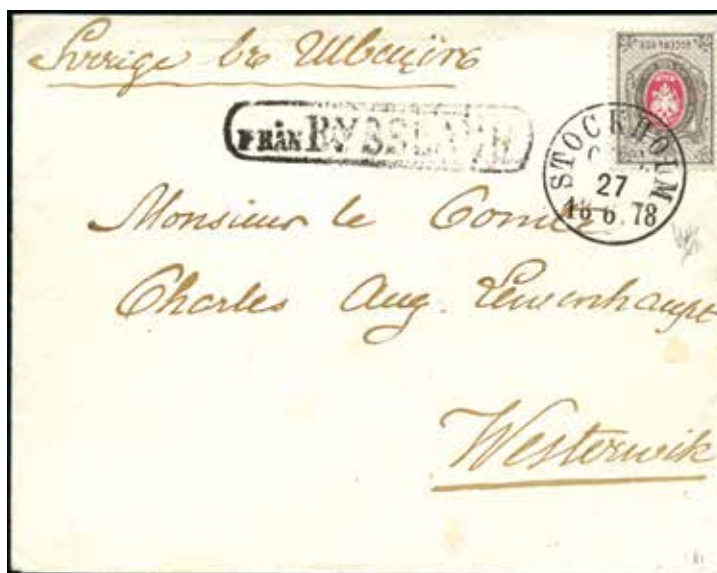 Sverige въ Швецію
FRÅN RYSSLAND
STOCKHOLM
27
18 6 78
Monsieur le Comte
Charles Aug. Lewenhaupt
Westerwik